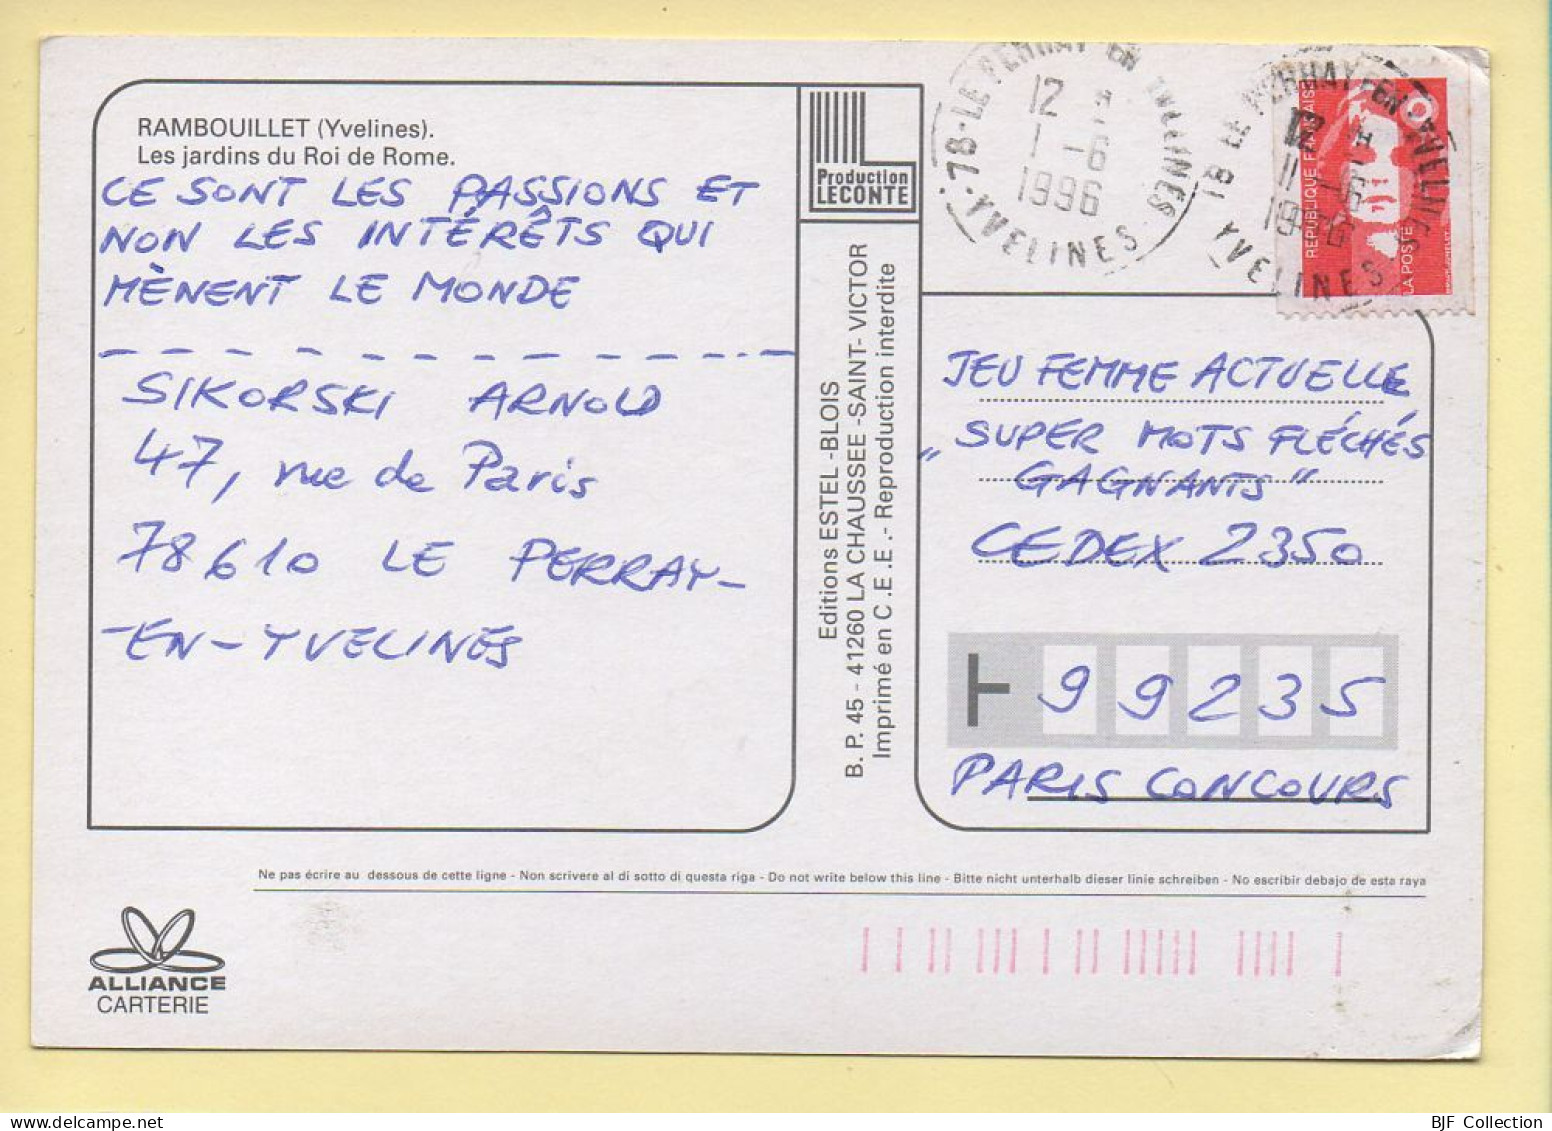 RAMBOUILLET (Yvelines).
Les jardins du Roi de Rome.
CE SONT LES PASSIONS ET
NON LES INTÉRÊTS QUI
MÈNENT LE MONDE
SIKORSKI ARNOLD
47, rue de Paris
78610 LE PERRAY-
-EN-YVELINES
Production
LECONTE
Editions ESTEL -BLOIS
B. P. 45 - 41260 LA CHAUSSEE -SAINT- VICTOR
Imprimé en C .E .E .- Reproduction interdite
78-LE PERRAY EN YVELINES
12 H
1 -6
1996
YVELINES
78 LE PERRAY EN YVELINES
12 H
1 -6
1996
YVELINES
REPUBLIQUE FRANÇAISE
LA POSTE
JEU FEMME ACTUELLE
„SUPER MOTS FLÉCHÉS
GAGNANTS"
CEDEX 2350
99235
PARIS CONCOURS
Ne pas écrire au dessous de cette ligne - Non scrivere al di sotto di questa riga - Do not write below this line - Bitte nicht unterhalb dieser linie schreiben - No escribir debajo de esta raya
ALLIANCE
CARTERIE
BJF Collection